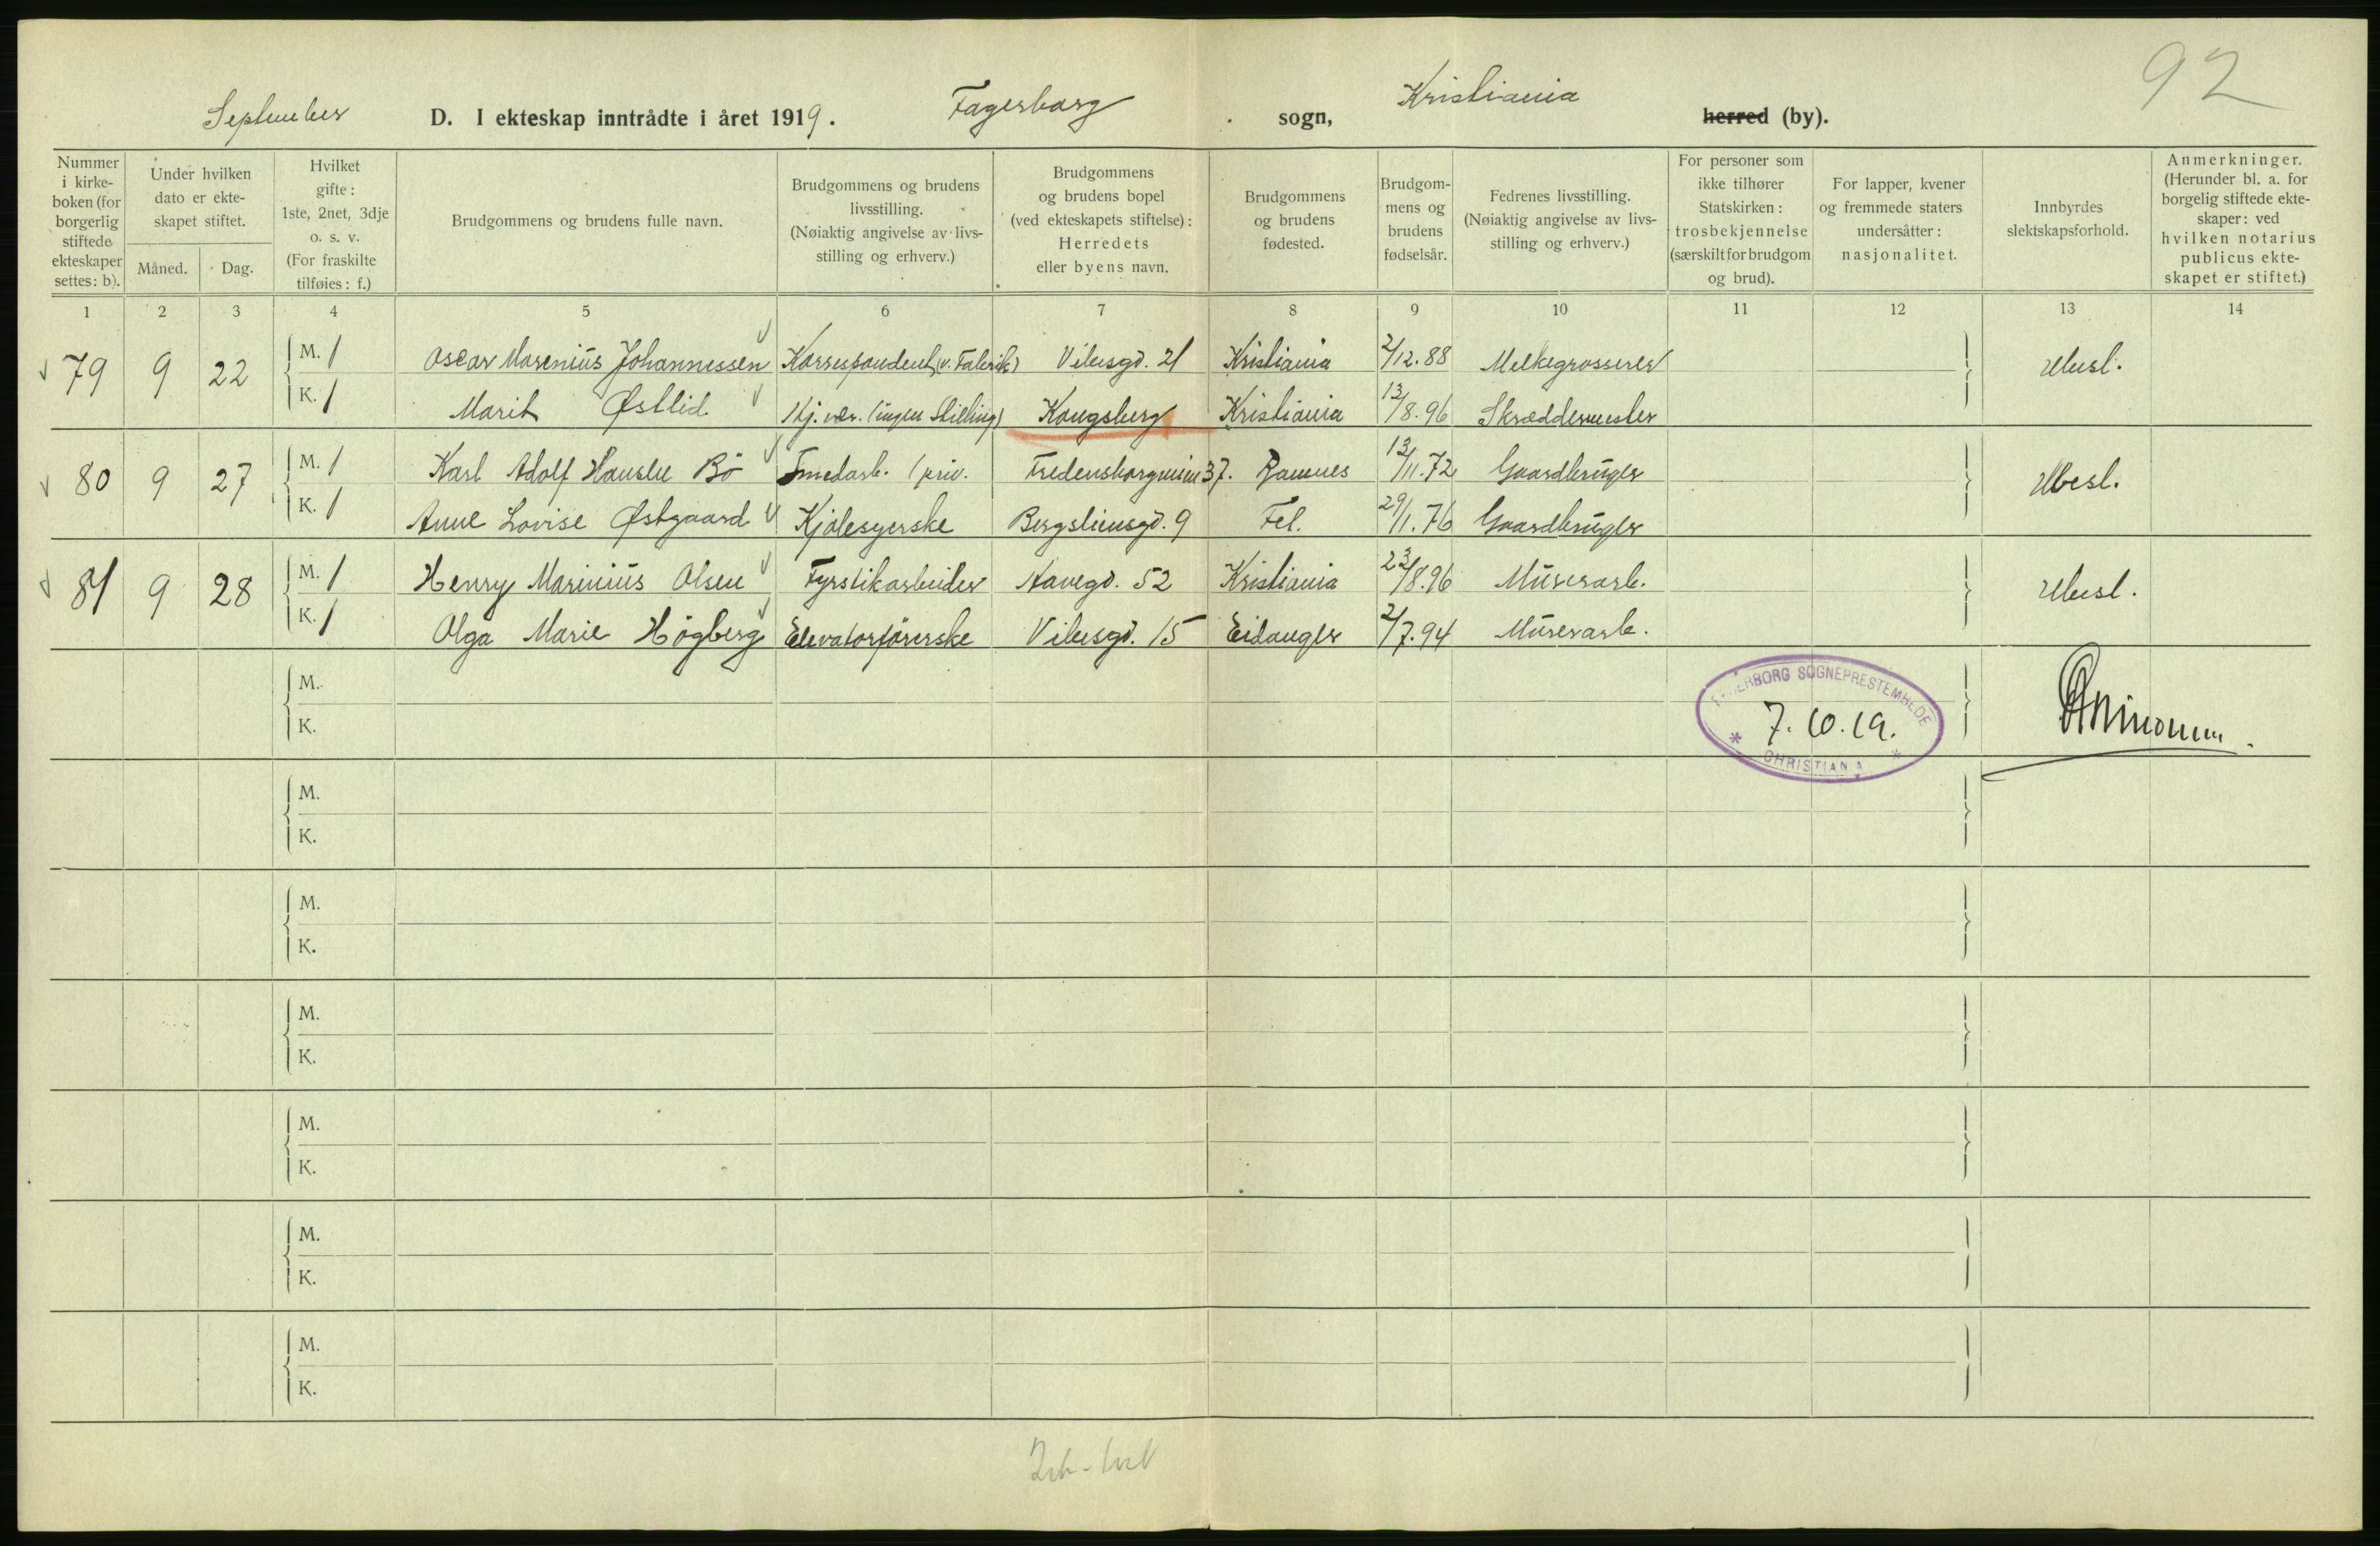 92
September D. I ekteskap inntrådte i året 1919. Fagerborg sogn, Kristiania herred (by).
Nummer i kirkeboken (for borgerlig stiftede ekteskaper settes: b).
Under hvilken dato er ekteskapet stiftet.
Måned. Dag.
Hvilket gifte: 1ste, 2net, 3dje o. s. v. (For fraskilte tilføies: f.)
Brudgommens og brudens fulle navn.
Brudgommens og brudens livsstilling. (Nøiaktig angivelse av livsstilling og erhverv.)
Brudgommens og brudens bopel (ved ekteskapets stiftelse): Herredets eller byens navn.
Brudgommens og brudens fødested.
Brudgommens og brudens fødselsår.
Fedrenes livsstilling. (Nøiaktig angivelse av livsstilling og erhverv.)
For personer som ikke tilhører Statskirken: trosbekjennelse (særskilt for brudgom og brud).
For lapper, kvener og fremmede staters undersåtter: nasjonalitet.
Innbyrdes slektskapsforhold.
Anmerkninger. (Herunder bl. a. for borgelig stiftede ekteskaper: ved hvilken notarius publicus ekteskapet er stiftet.)
1 2 3 4 5 6 7 8 9 10 11 12 13 14
79 9 22 M. 1 Oscar Marenius Johannessen Korrespondent (v. Fabrik) Vibesgd. 21 Kristiania 2/12.88 Melkegrosserer Ubesl.
K. 1 Marit Østlid Hj. vær. (ingen Stilling) Kongsberg Kristiania 12/8.96 Skræddermester
80 9 27 M. 1 Karl Adolf Hanslu Bö Smedarb. (priv. Fredensborgveien 37. Ramnes 12/11.72 Gaardbruger Ubesl.
K. 1 Anne Lovise Østgaard Kjolesyerske Bergsliensgd. 9 Fet. 29/1.76 Gaardbruger
81 9 28 M. 1 Henry Marinius Olsen Fyrstikarbeider Havegd. 52 Kristiania 23/8.96 Murerarb. Ubesl.
K. 1 Olga Marie Högberg Elevatorförerske Vibesgd. 15 Eidanger 2/7.94 Murerarb.
M.
K.
FAGERBORG SOGNEPRESTEMBEDE
7.10.19.
CHRISTIANIA
M.
K.
M.
K.
M.
K.
M.
K.
M.
K.
M.
K.